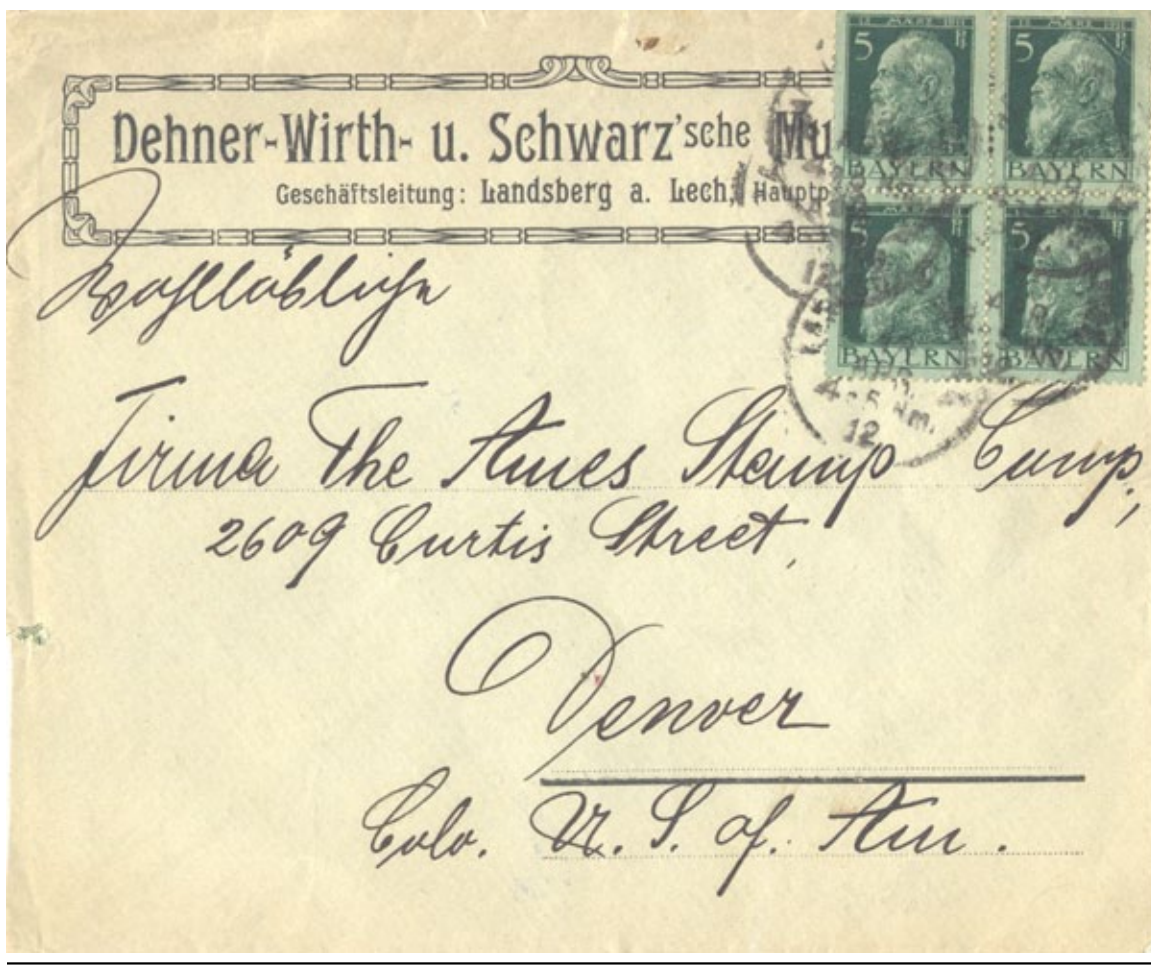 Dehner-Wirth- u. Schwarz'sche Mu
Geschäftsleitung: Landsberg a. Lech, Hauptp
12 MÄRZ 1911
5 Pf
BAYERN
12 MÄRZ 1911
5 Pf
BAYERN
5
BAYERN
5
BAYERN
4-5 Nm.
12
Wohllöbliche
Firma The Ames Stamp Comp,
2609 Curtis Street,
Denver
Colo. U. S. of. Am.